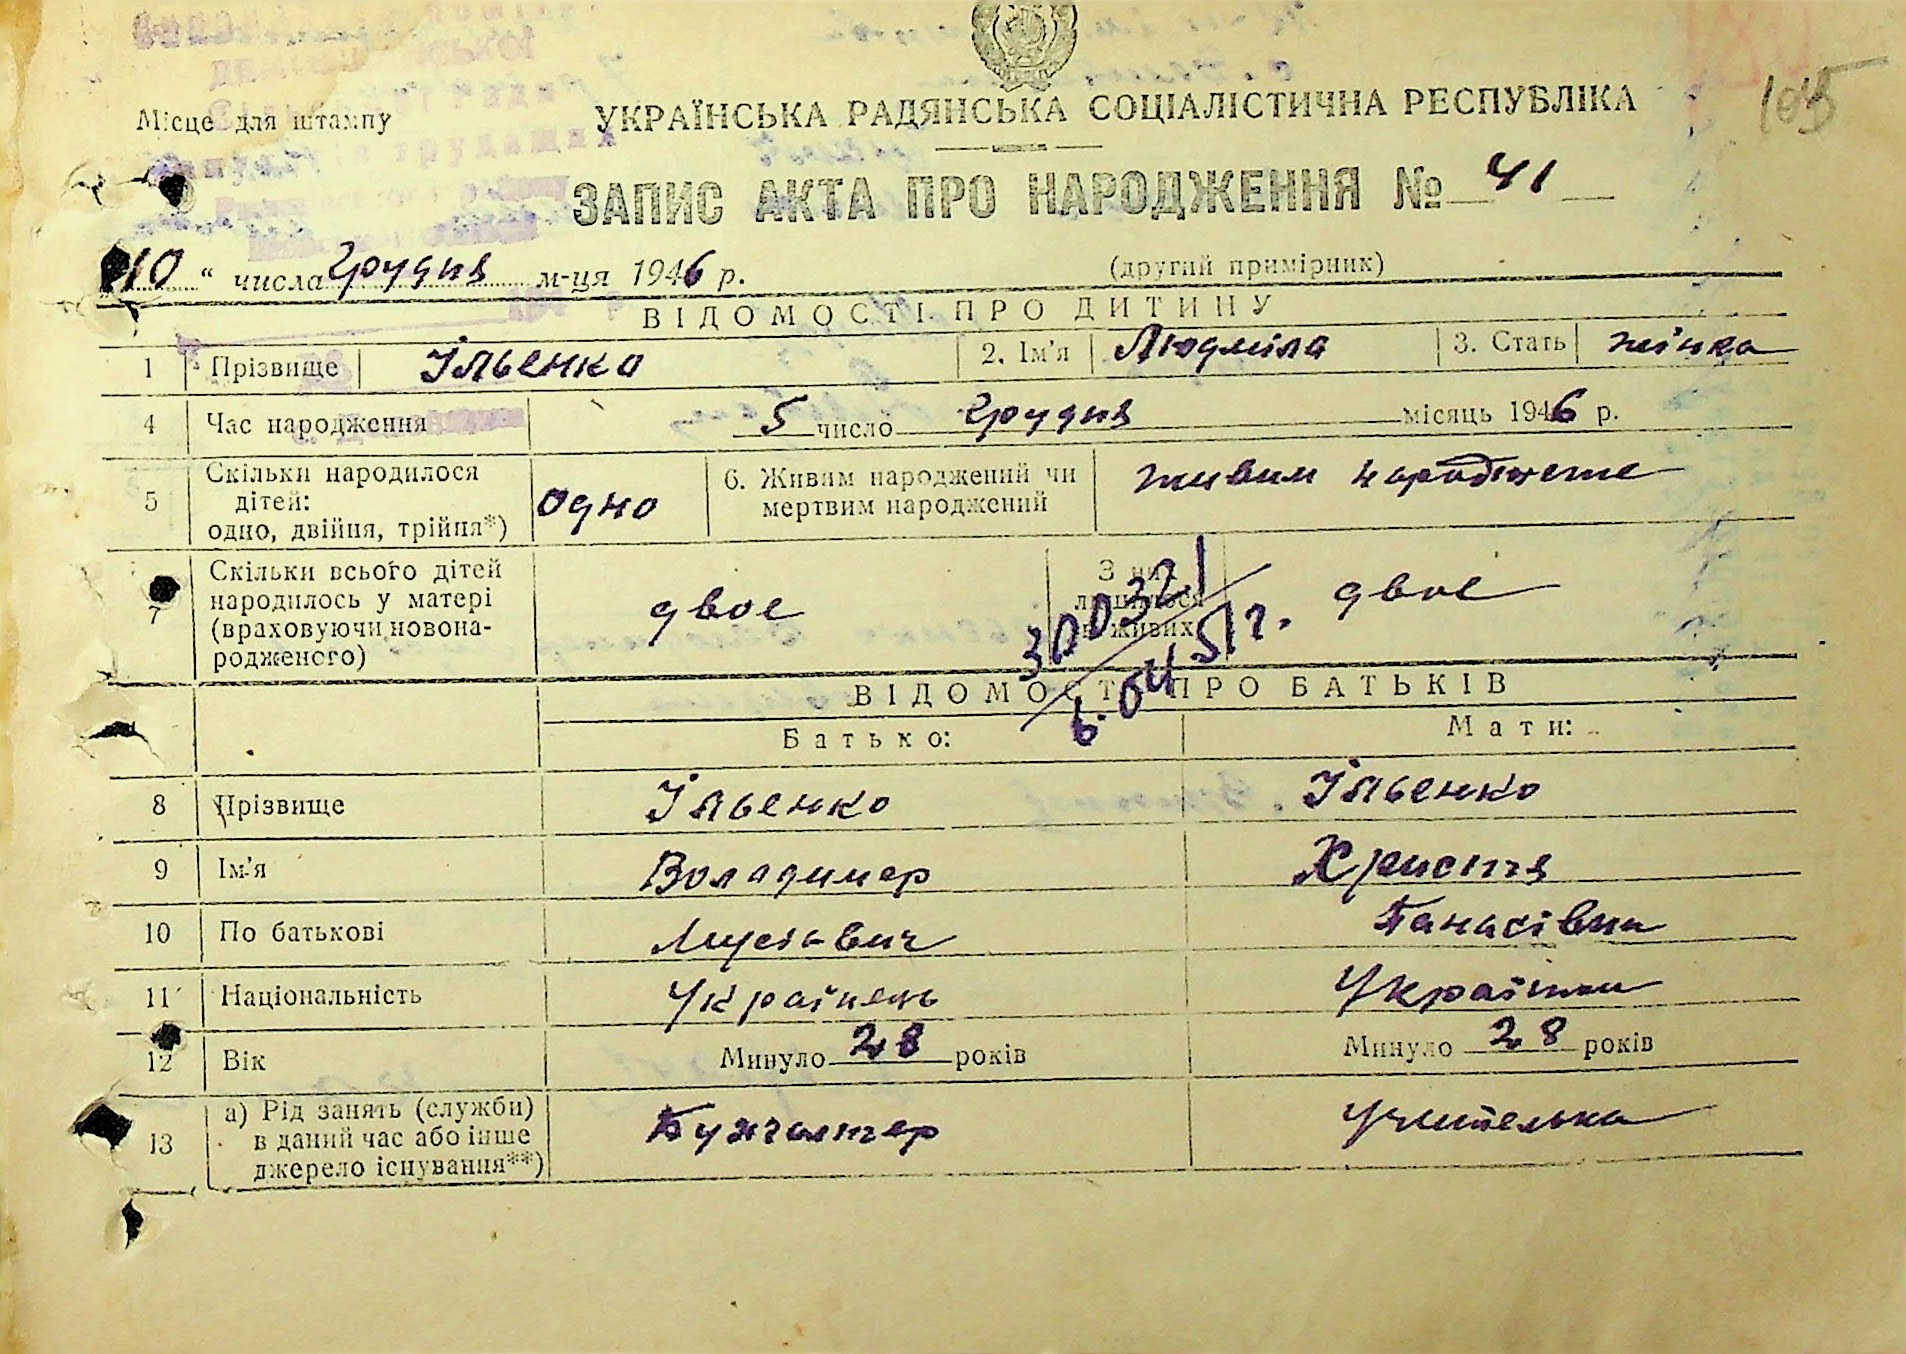 105
Місце для штампу
УКРАЇНСЬКА РАДЯНСЬКА СОЦІАЛІСТИЧНА РЕСПУБЛІКА
ЗАПИС АКТА ПРО НАРОДЖЕННЯ № 41
10 “ числа Грудня м-ця 1946 р.
(другий примірник)
ВІДОМОСТІ ПРО ДИТИНУ
1 Прізвище Ільенко 2. Ім'я Людміла 3. Стать жінка
4 Час народження 5 число Грудня місяць 1946 р.
5 Скільки народилося дітей: одно, двійня, трійня*) одно 6. Живим народжений чи мертвим народжений живим народжене
7 Скільки всього дітей народилось у матері (враховуючи новонародженого) двое З них лишилося в живих двое
300321
6.04 51 г.
ВІДОМОСТІ ПРО БАТЬКІВ
Батько: Мати:
8 Прізвище Ільенко Ільенко
9 Ім'я Володимер Христя
10 По батькові Панасівна
11 Національність Українець Українка
12 Вік Минуло 28 років Минуло 28 років
13 а) Рід занять (служби) в даний час або інше джерело існування**) Бухгалтер Учителька